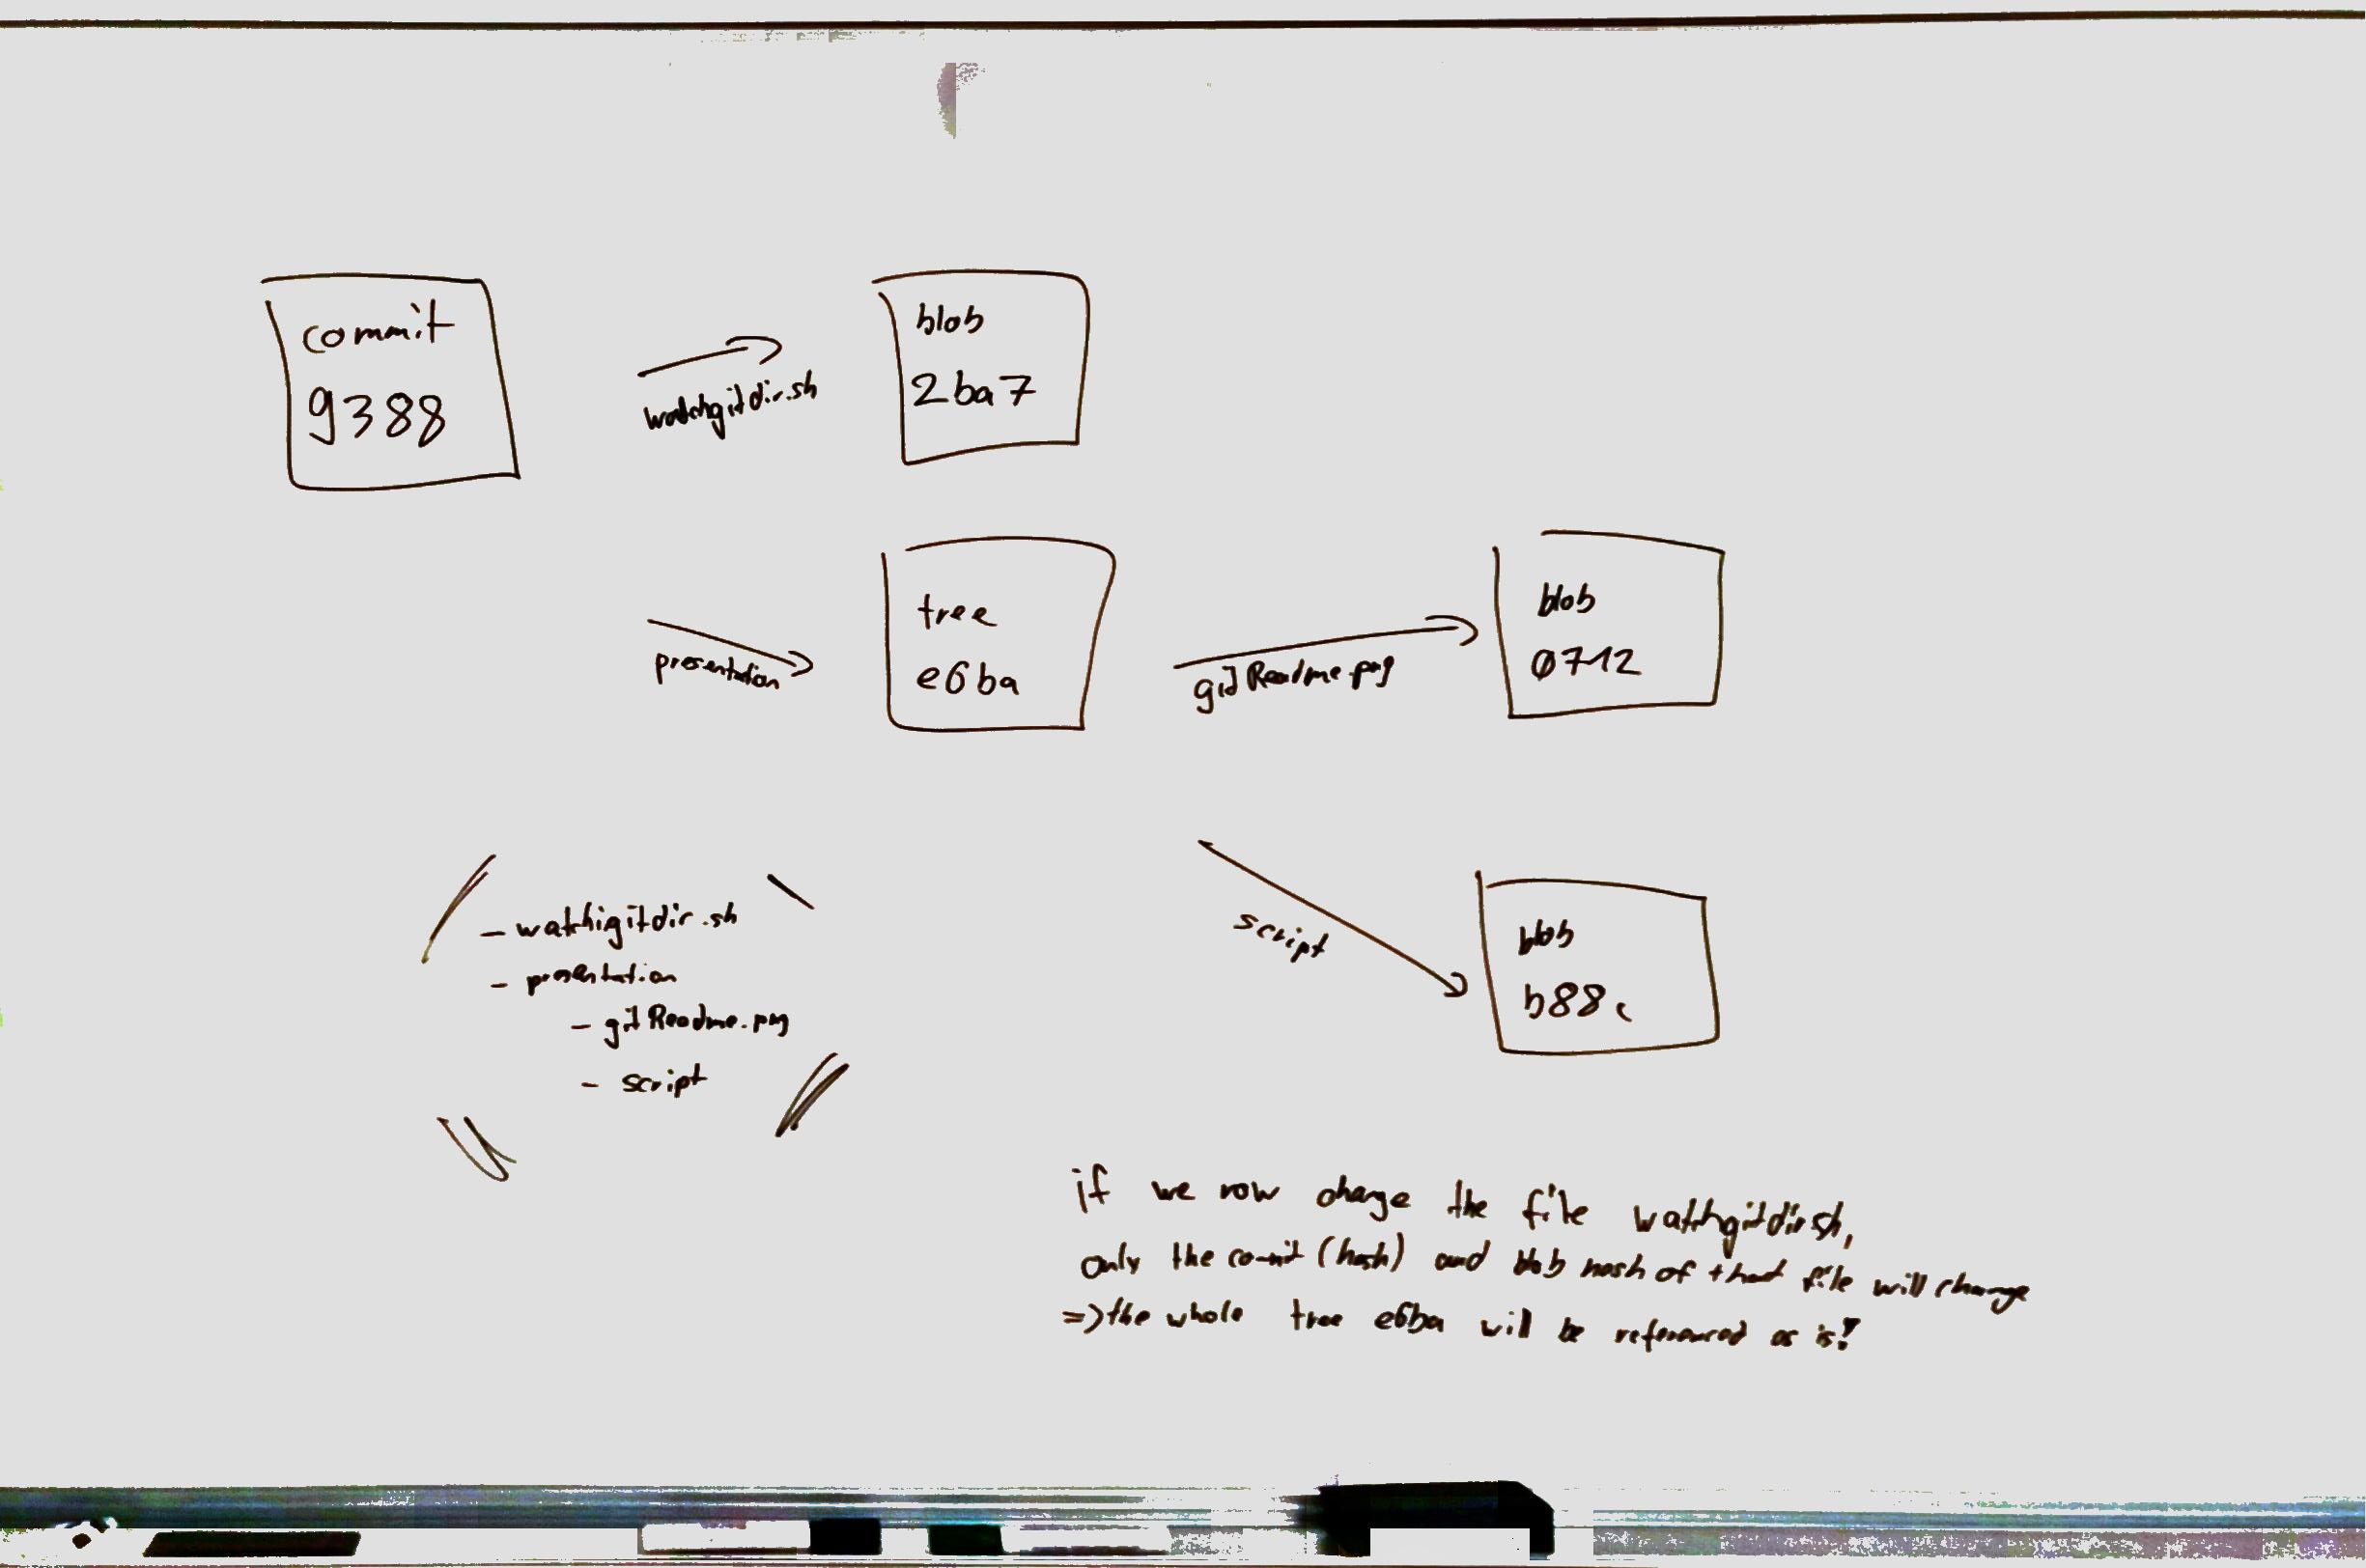 commit
9388
watchgitdir.sh
blob
2ba7
presentation
tree
e6ba
gitReadme.png
blob
0712
script
blob
b88c
- watchigitdir.sh
- presentation
- gitReadme.png
- script
if we now change the file watchgitdir.sh,
only the commit (hash) and blob hash of that file will change
=> the whole tree e6ba will be referenced as is!